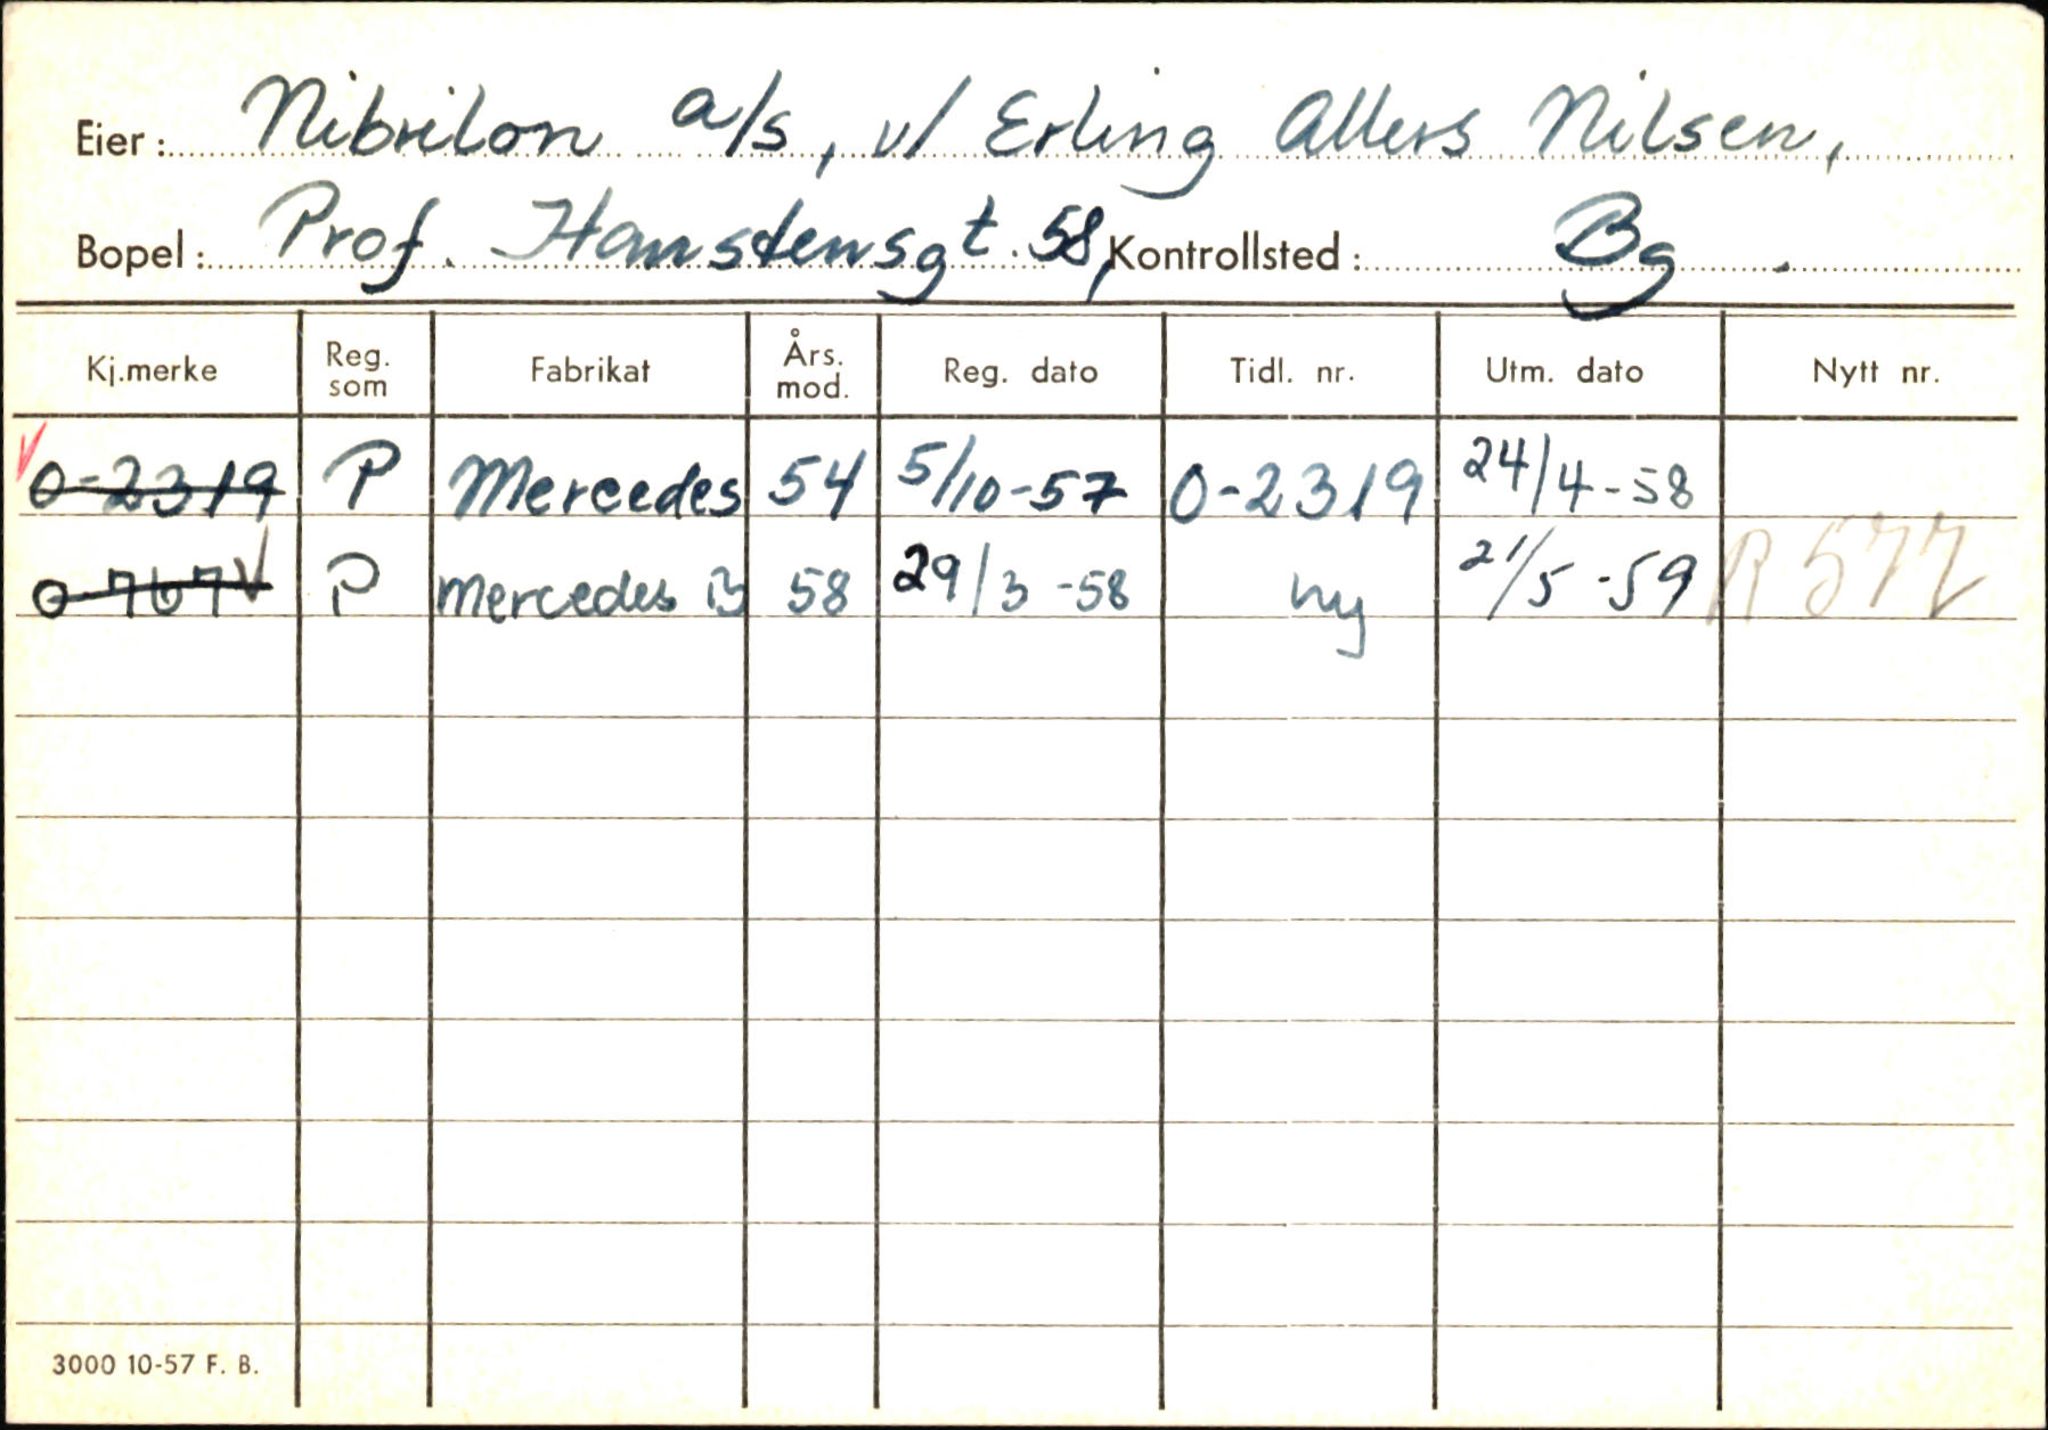 Eier: Nibrilon a/s, v/ Erling Allers Nilsen,
Bopel: Prof. Hanstensgt. 58, Kontrollsted: Bg.
Kj.merke Reg. som Fabrikat Års. mod. Reg. dato Tidl. nr. Utm. dato Nytt nr.
O-2319 P Mercedes 54 5/10-57 O-2319 24/4-58
O-767 P Mercedes B 58 29/3-58 ny 21/5-59 R 577
3000 10-57 F. B.